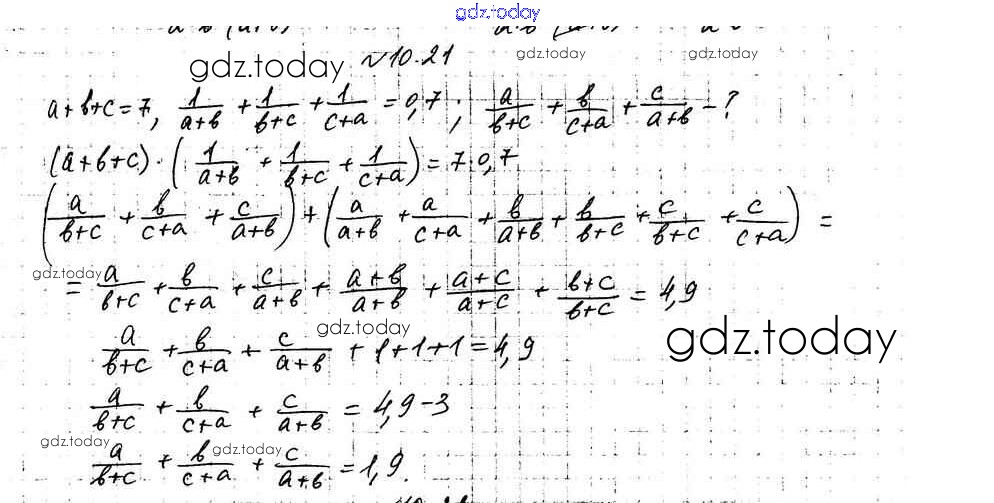 gdz.today
gdz.today №10.21 gdz.today gdz.today
a+b+c=7, 1/(a+b) + 1/(b+c) + 1/(c+a) = 0,7; a/(b+c) + b/(c+a) + c/(a+b) - ?
(a+b+c)·(1/(a+b) + 1/(b+c) + 1/(c+a)) = 7·0,7
(a/(b+c) + b/(c+a) + c/(a+b)) + (a/(a+b) + a/(c+a) + b/(a+b) + b/(b+c) + c/(b+c) + c/(c+a)) =
gdz.today
= a/(b+c) + b/(c+a) + c/(a+b) + (a+b)/(a+b) + (a+c)/(a+c) + (b+c)/(b+c) = 4,9
gdz.today gdz.today
a/(b+c) + b/(c+a) + c/(a+b) + 1+1+1 = 4,9
a/(b+c) + b/(c+a) + c/(a+b) = 4,9-3
gdz.today gdz.today
a/(b+c) + b/(c+a) + c/(a+b) = 1,9.